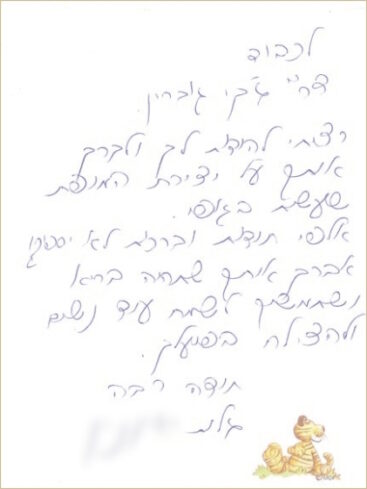 לכבוד
דר' ג'קי גוברין.
רציתי להודות לך ולברך
אותך על יצירת המופת
שעשית בגופי.
אלפי תודות וברכות לא יספקו
אברך אותך שתהיה בריא
ושתמשיך לשמח עוד נשים
ולהצליח בפועלך.
תודה רבה
גלית